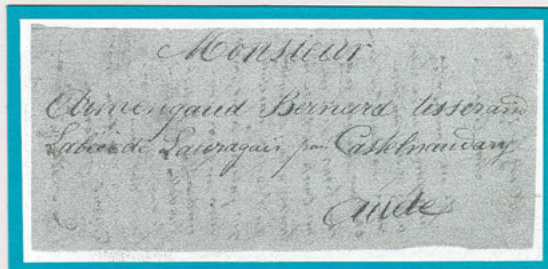 Monsieur
Armengaud Bernard tisserand
Labécède Lauragais par Castelnaudary
Aude